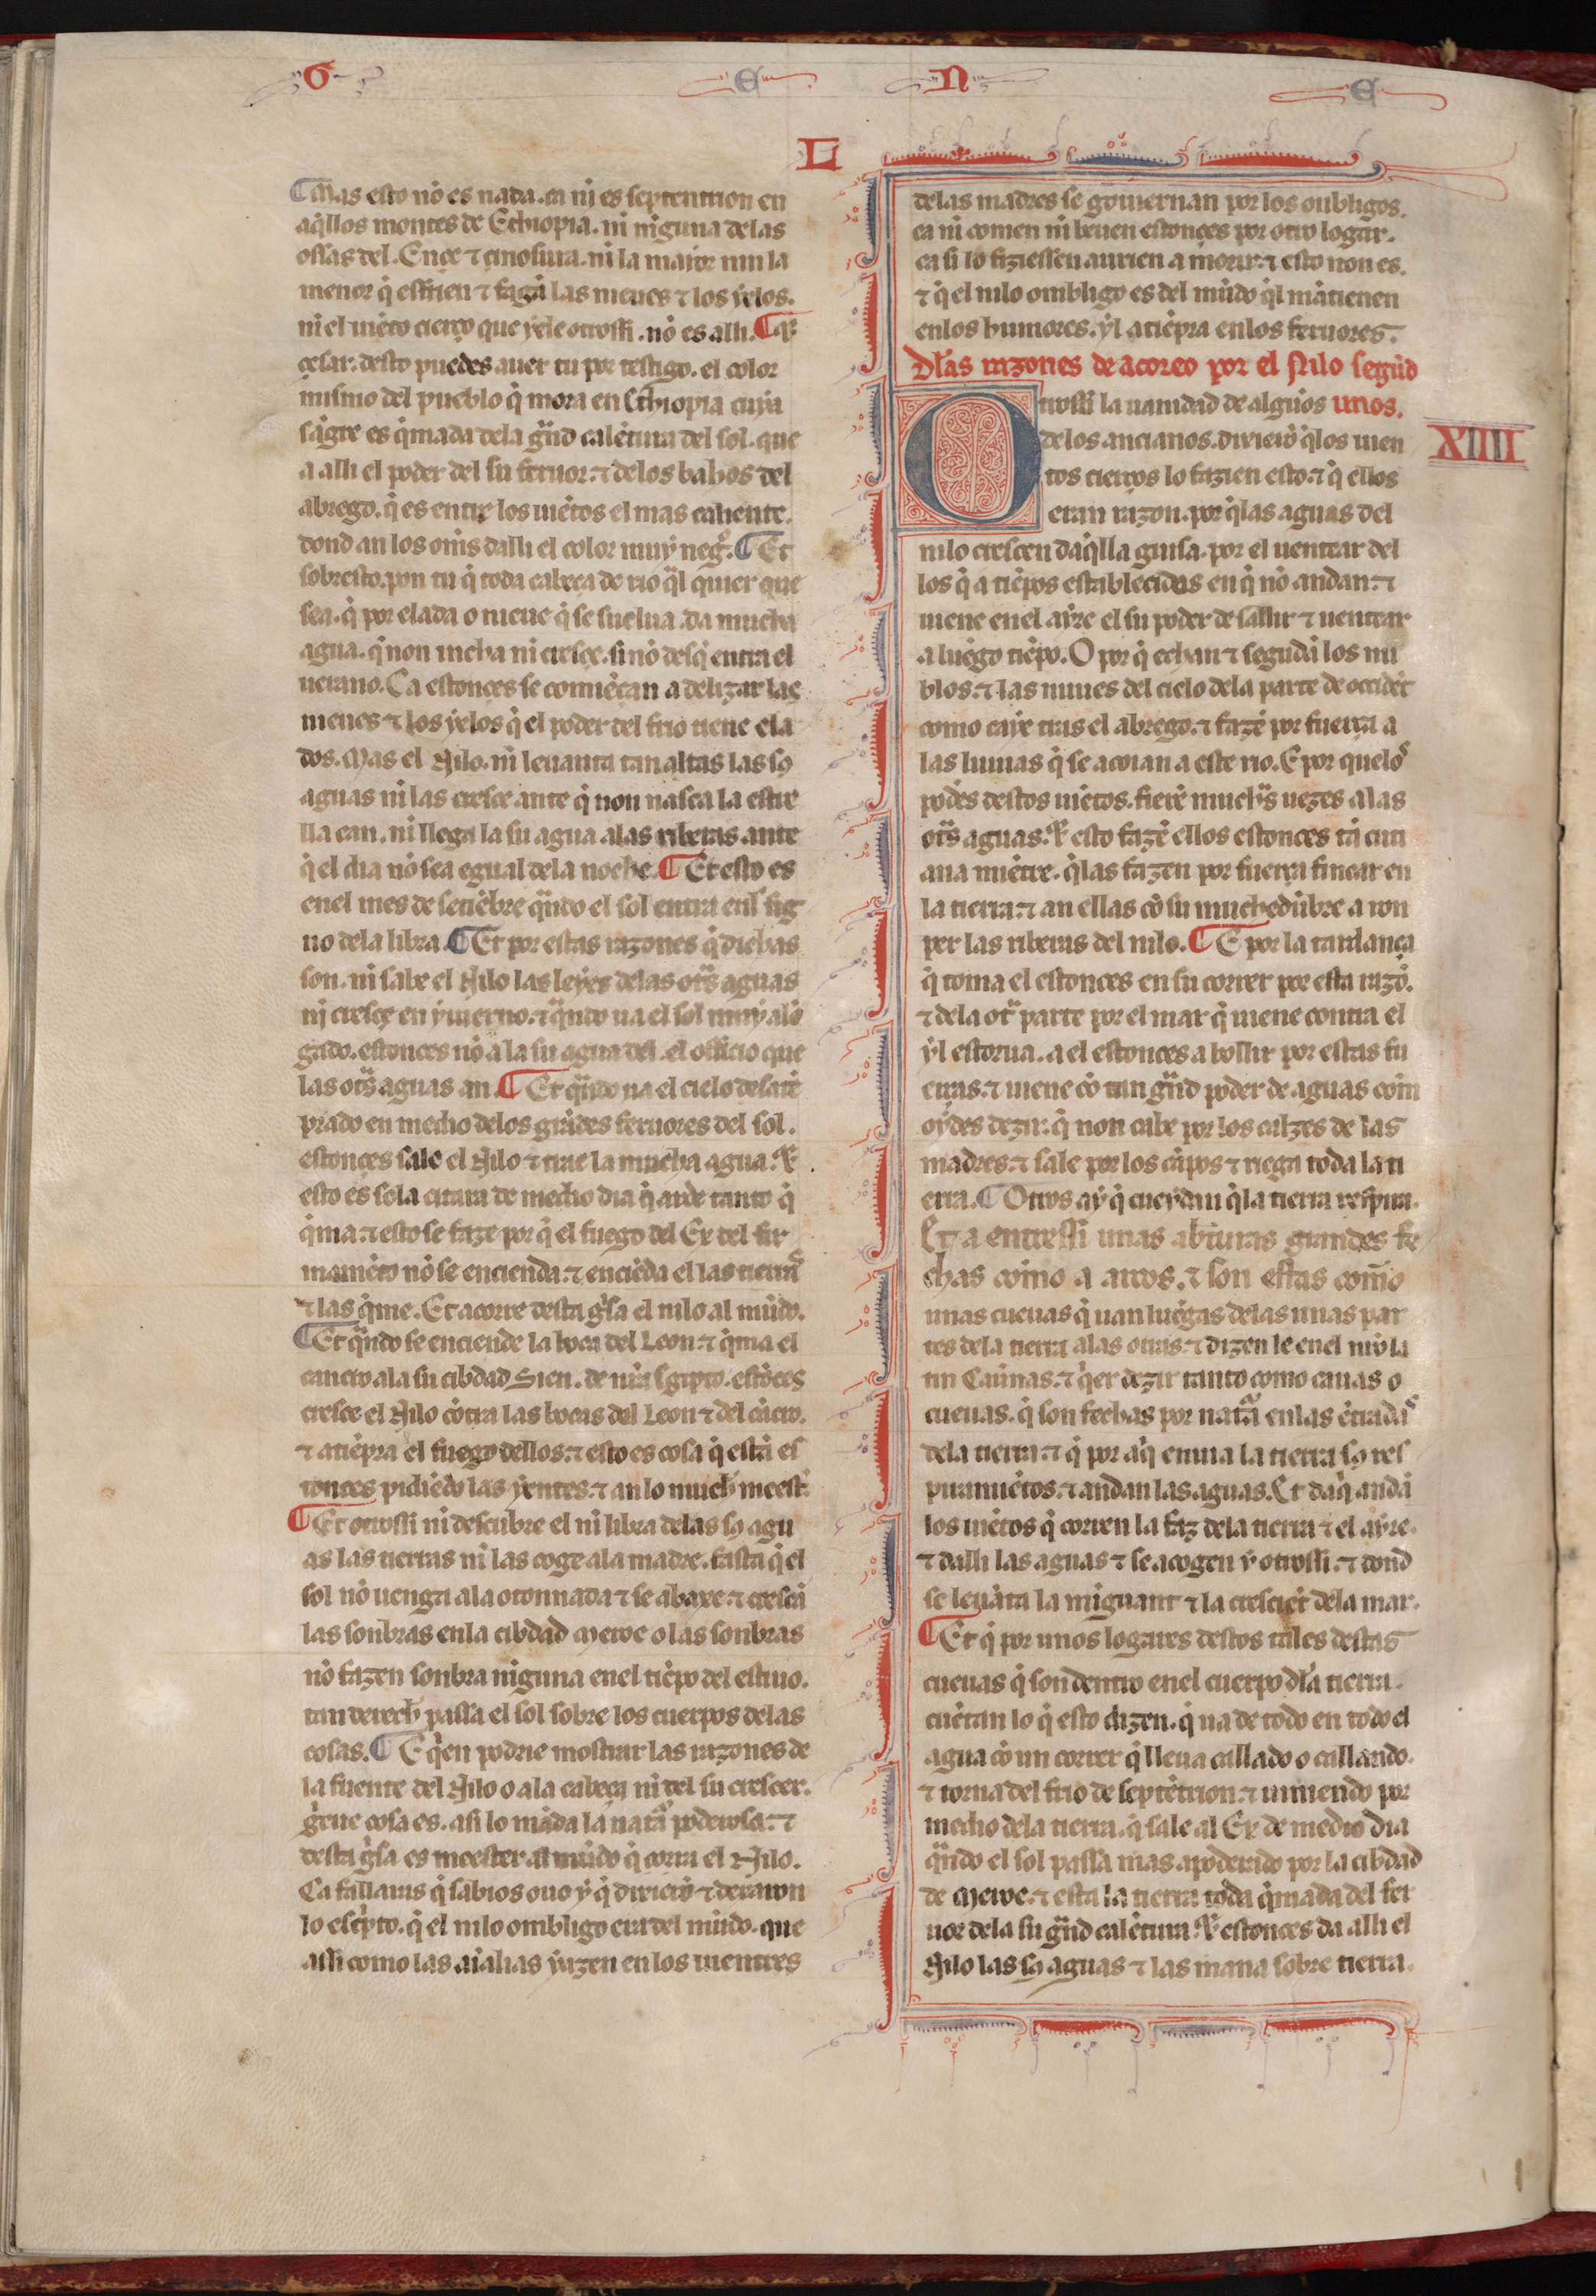 G E N E
L
¶Mas esto nõ es nada. ca nj es septentrion en
aq̃llos montes de Ethiopia. ni niguna delas
ossas del. Ençe ⁊ cinosura. ni la maior nin la
menor q̃ esfrien ⁊ fagã las nieues ⁊ los yelos.
ni el uiẽto cierço que yele otrossi. nõ es alli. ¶
çesar. desto puedes auer tu por testigo. el color
mismo del pueblo q̃ mora en Ethiopia cuya
sãgre es q̃mada dela grãd calẽtura del sol. que
a alli el poder del su feruor. ⁊ delos bahos del
abrego. q̃ es entre los uiẽtos el mas caliente.
dond an los om̃s dalli el color muy negro. ¶Et
sobresto. pon tu q̃ toda cabeça de rio q̃l quier que
sea. q̃ por elada o nieue q̃ se suelua. da mucha
agua. q̃ non incha ni cresçe. si nõ desq̃ entra el
uerano. Ca estonces se comiẽçan a delizar las
nieues ⁊ los yelos q̃ el poder del frio tiene ela
dos. Mas el Nilo. ni leuanta tan altas las sus
aguas ni las cresce ante q̃ non nasca la estre
lla can. ni llega la su agua alas riberas. ante
q̃ el dia nõ sea egual dela noche. ¶Et esto es
enel mes de setiẽbre quãdo el sol entra enel sig
no dela libra. ¶Et por estas razones q̃ dichas
son. ni sabe el Nilo las leyes delas otras aguas
nj cresçe en yuierno. ⁊ quãdo ua el sol muy alõ
gado. estonces nõ a la su agua del. el officio que
las otras aguas an. ¶Et quãdo ua el cielo destẽ
prado en medio delos grãdes feruores del sol.
estonces sale el Nilo ⁊ trae la mucha agua. ⁊
esto es sola cinta de medio dia q̃ arde tanto q̃
q̃ma. ⁊ esto se faze por q̃ el fuego del Ex del fir
mamẽto nõ se encienda. ⁊ enciẽda el las tierras
⁊ las q̃me. Et acorre desta guisa el nilo al mũdo.
¶Et quãdo se enciende la boca del Leon. ⁊ q̃ma el
cancro ala su cibdad Sien. de nr̃a Egipto. estõces
cresce el Nilo cõtra las bocas del Leon ⁊ del cãcro.
⁊ atiẽpra el fuego dellos. ⁊ esto es cosa q̃ estã es
tonces pidiẽdo las yentes. ⁊ an lo mucho meester.
¶Et otrossi ni descubre el ni libra delas sus agu
as las tierras ni las coge ala madre. fasta q̃ el
sol nõ uenga ala otonnada ⁊ se abaxe. ⁊ crescã
las sonbras enla cibdad Meroe o las sonbras
nõ fazen sonbra niguna enel tiẽpo del estiuo.
tan derecho passa el sol sobre los cuerpos delas
cosas. ¶E q̃en podrie mostrar las razones de
la fuente del Nilo o ala cabeça ni del su crescer.
greue cosa es. asi lo mãda la natura poderosa. ⁊
desta guisa es meester al mũdo q̃ corra el Nilo.
Ca fallaras q̃ sabios ouo y q̃ dixierõ ⁊ dexaron
lo escripto. q̃ el nilo ombligo era del mũdo. que
assi como las aĩalias yazen en los uientres
delas madres se gouiernan por los onbligos.
ca ni comen ni beuen estonçes por otro logar.
ca si lo fiziessen aurien a morir. ⁊ esto non es.
⁊ q̃ el nilo ombligo es del mũdo q̃l mãtienen
enlos humores. yl atiẽpra enlos feruores.
Dlas razones de acoreo por el Nilo segũd
unos.
XIIII
Otrossi la uanidad de algũos
delos ancianos. dixierõ q̃ los uien
tos cierços lo fazien esto. ⁊ q̃ ellos
eran razon. por q̃ las aguas del
nilo crescen daq̃lla guisa. por el uentear del
los q̃ a tiẽpos establecidos en q̃ nõ andan. ⁊
uiene enel ayre el su poder de sallir ⁊ uentear
a luẽgo tiẽpo. O por q̃ echan ⁊ segudã los nu
blos. ⁊ las nuues del cielo dela parte de occidẽt
como caye tras el abrego. ⁊ fazẽ por fuerça a
las luuias q̃ se acoian a este rio. E por que los
podẽs destos uiẽtos. fierẽ muchas uezes alas
otras aguas. ⁊ esto fazẽ ellos estonces tã cuti
ana miẽtre. q̃ las fazen por fuerça fincar en
la tierra. ⁊ an ellas cõ su muchedũbre a ron
per las riberas del nilo. ¶E por la tardança
q̃ toma el estonces en su correr por esta razõ.
⁊ dela otra parte por el mar q̃ uiene contra el
yl estorua. a el estonces a bollir por estas fu
erças. ⁊ uiene cõ tan grãd poder de aguas com
oydes dezir. q̃ non cabe por los calzes de las
madres. ⁊ sale por los cãpos ⁊ riega toda la ti
erra. ¶Otros ay q̃ cueydan q̃ la tierra respira.
Et a entressi unas aberturas grandes fe
chas como a arcos. ⁊ son estas como
unas cueuas q̃ uan luẽgas delas unas par
tes dela tierra alas otras. ⁊ dizen le enel nr̃o la
tin Cauĩnas. ⁊ q̃er dezir tanto como cauas o
cueuas. q̃ son fechas por natura enlas ẽtradas
dela tierra. ⁊ q̃ por aq̃ enuia la tierra sus res
piramiẽtos. ⁊ andan las aguas. Et daq̃ andã
los uiẽtos q̃ corren la faz dela tierra ⁊ el ayre.
⁊ dalli las aguas ⁊ se acogen y otrossi. ⁊ dond
se leuãta la miguant ⁊ la cresciẽt dela mar.
¶Et q̃ por unos logares destos tales destas
cueuas q̃ son dentro enel cuerpo dla tierra.
cuẽtan lo q̃ esto dizen. q̃ ua de todo en todo el
agua cõ un correr q̃ lleua callado o callando.
⁊ torna del frio de septẽtrion. ⁊ uiniendo por
medio dela tierra. q̃ sale al Ex de medio dia
quãdo el sol passa mas apoderido por la cibdad
de Meroe. ⁊ esta la tierra toda q̃mada del fer
uor dela su grãd calẽtura. ⁊ estonces da alli el
Nilo las sus aguas ⁊ las mana sobre tierra.